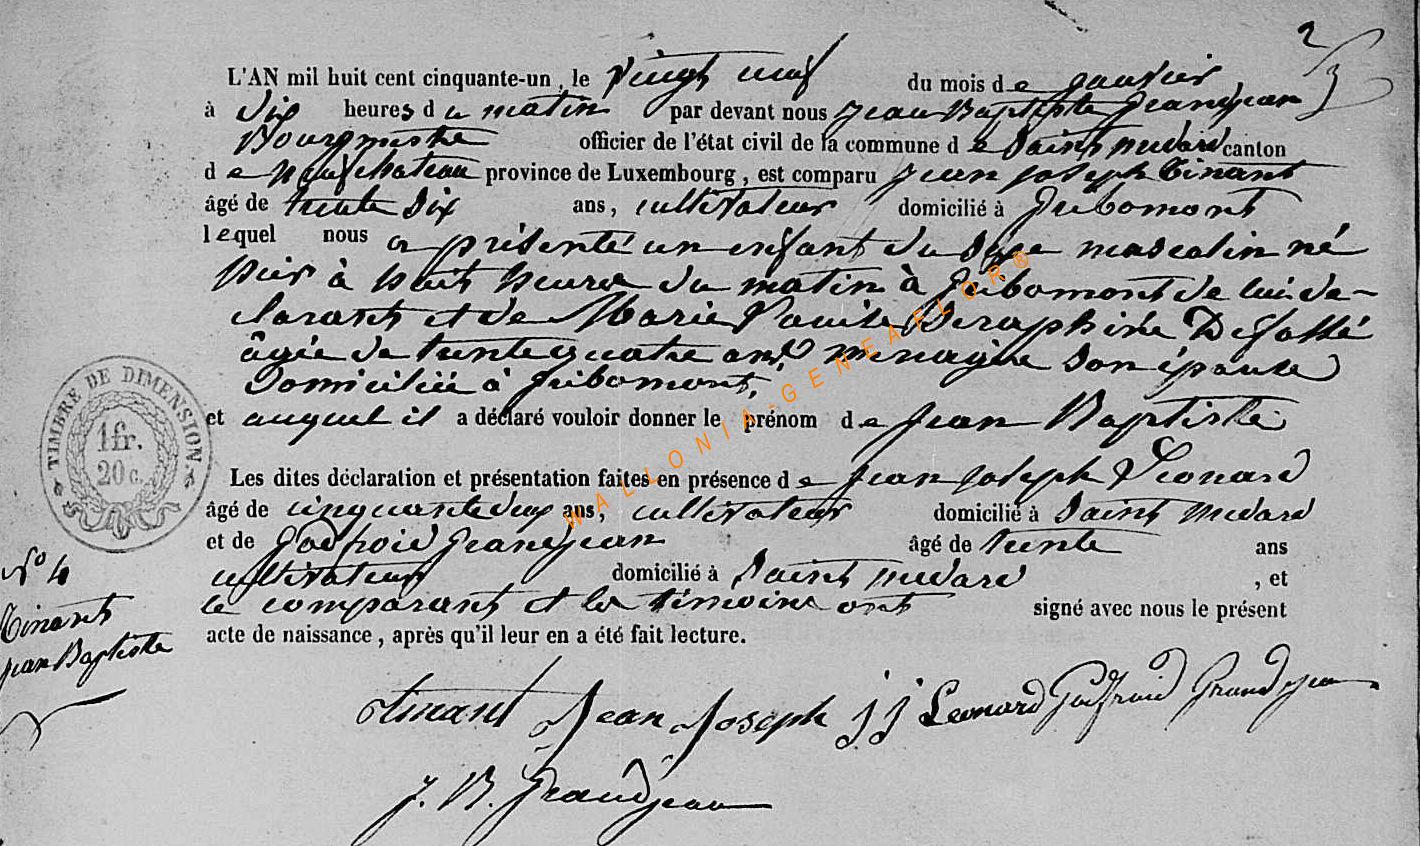 2/3
L'AN mil huit cent cinquante-un, le vingt neuf du mois de janvier
à dix heures du matin par devant nous Jean Baptiste Grandjean
Bourgmestre officier de l'état civil de la commune de Saint medard canton
de neufchateau province de Luxembourg, est comparu Jean joseph Tinant
âgé de trente six ans, cultivateur domicilié à Gribomont
lequel nous a présenté un enfant du sexe masculin né
hier à huit heures du matin à Gribomont de lui dé-
clarant et de Marie Louise Seraphine Defossé
âgée de trente quatre ans menagère son épouse
domiciliée à Gribomont,
et auquel il a déclaré vouloir donner le prénom de Jean Baptiste
Les dites déclaration et présentation faites en présence de Jean joseph Leonard
âgé de cinquante deux ans, cultivateur domicilié à Saint medard
et de Godfroid Grandjean âgé de trente ans
cultivateur domicilié à Saint medard, et
le comparant et les témoins ont signé avec nous le présent
acte de naissance, après qu'il leur en a été fait lecture.
Tinant Jean Joseph j j Leonard Godfroid Grandjean
J. B. Grandjean
TIMBRE DE DIMENSION
1fr.
20 c.
N° 4
Tinant
jean Baptiste
WALLONIA-GENEAFLOR®